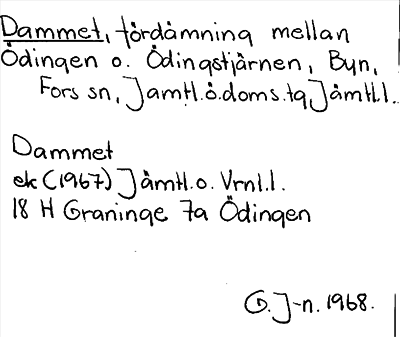 Dammet, fördämning mellan
Ödingen o. Ödingstjärnen, Byn,
Fors sn, Jämtl.ö.doms.tg Jämtl.l.
Dammet
ek (1967) Jämtl.o. Vrnl.l.
18 H Graninge 7a Ödingen
G. J-n. 1968.